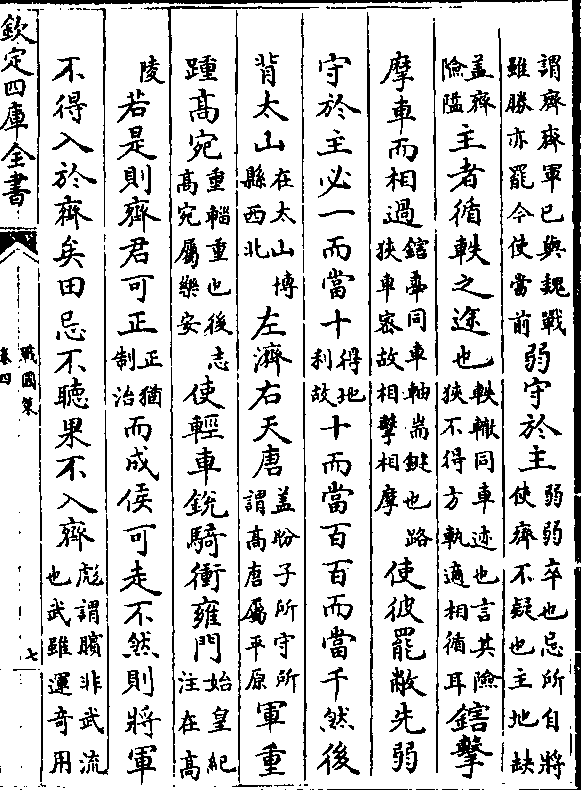 謂齊齊軍已與魏戰雖勝亦罷今使當前弱守於主弱弱卒也忌所自將使齊不疑也主地缺
盖齊險隘主者循軼之途也軼轍同車迹也言其險狹不得方軌適相循耳鎋擊
摩車而相過鎋舝同車軸耑鍵也路狹車密故相擊相摩使彼罷敝先弱
守於主必一而當十得地利故十而當百百而當千然後
背太山在太山博縣西北左濟右天唐盖盼子所守所謂高唐屬平原軍重
踵高宛重輜重也後志高宛屬樂安使輕車銳騎衝雍門始皇紀注在高
陵若是則齊君可正正猶制治而成侯可走不然則將軍
不得入於齊矣田忌不聽果不入齊彪謂臏非武流也武雖運奇用
欽定四庫全書
戰國策
卷四
七